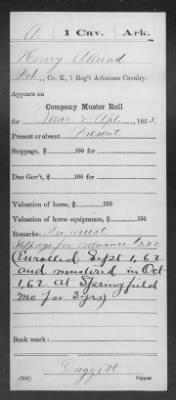 A | 1 Cav. | Ark.
Henry
Pvt., Co. K, 1 Reg't Arkansas Cavalry.
Appears on
Company Muster Roll
for Mar & Apl, 1863.
Present or absent Present
Stoppage, $ 100 for
Due Gov't, $ 100 for
Valuation of horse, $ 100
Valuation of horse equipments, $ 100
Remarks: In arrest
Stoppage for ordnance
(Enrolled Sept 1, 62
and mustered in Oct
1, 62 at Springfield
Mo for 3 yrs)
Book mark:
Daggett
(358) Copyist